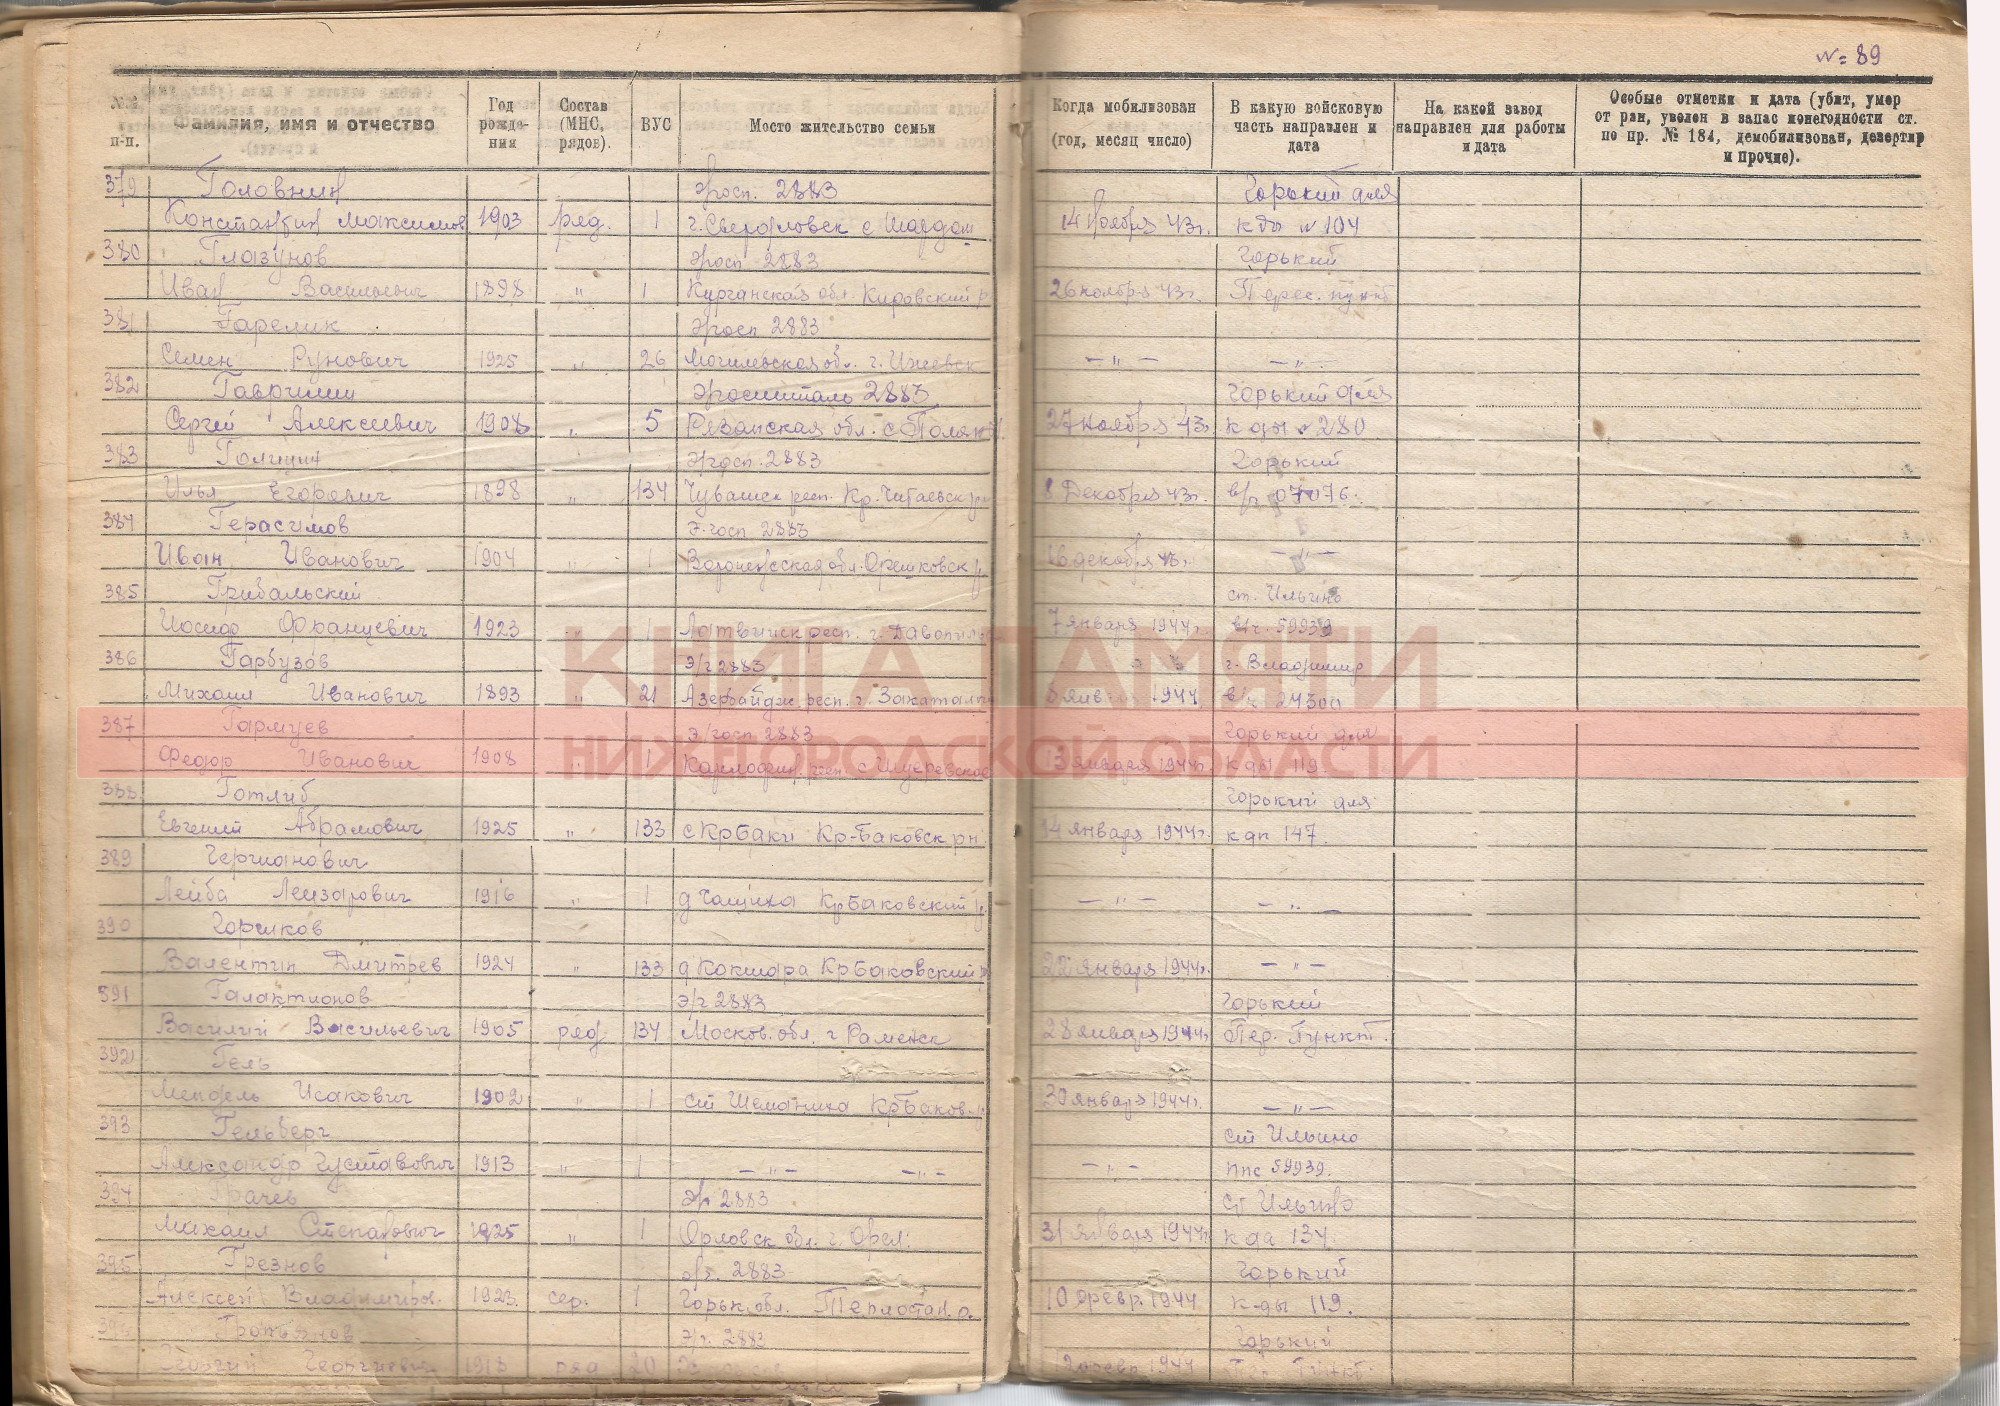 № 89
№№ п-п.
Фамилия, имя и отчество
Год рождения
Состав (МНС, рядов).
ВУС
Место жительство семьи
Когда мобилизован (год, месяц число)
В какую войсковую часть направлен и дата
На какой завод направлен для работы и дата
Особые отметки и дата (убит, умер от ран, уволен в запас по негодности ст. по пр. № 184, демобилизован, дезертир и прочие).
379 Головнин Эгосп. 2883 Горький для
Константин Максимов 1903 ряд. 1 г. Свердловск с 14 Ноября 43г. кды № 104
380 Глазунов Эгосп 2883 Горький
Иван Васильевич 1898 " 1 Курганская обл. Кировский р 26 ноября 43г. Перес. пункт
381 Гарелик Эгосп 2883
Семен Рунович 1925 " 26 Могилевская обл. г. Ижевск — " — — " —
382 Гаврилин Эгоспиталь 2883 Горький для
Сергей Алексеевич 1908 " 5 Рязанская обл. с 27 Ноября 43г. кды № 280
383 Голицин Эгосп. 2883 Горький
Илья Егорович 1898 " 134 Чувашск респ. Кр. Читаевск 8 Декабря 43г. в/ч 07076.
384 Герасимов Э.госп 2883
Иван Иванович 1904 " 1 Воронежская обл. 16 декабря 43г. — " —
385 Грибальский ст. Ильино
Иосиф Францевич 1923 " 1 Латвийск респ. г. 7 января 1944г. в/ч. 59939
386 Гарбузов Э/г 2883 г. Владимир
Михаил Иванович 1893 " 21 Азербайдж. респ. г. Закаталы 8 янв 1944 в/ч 24300
387 Гармуев Э/госп 2883 Горький для
Федор Иванович 1908 " 1 января 1944г. кды 119
388 Готлиб Горький для
Евгений Абрамович 1925 " 133 с Кр Баки Кр-Баковск рн. 14 января 1944г. к дп 147.
389 Германович
Лейба Лейзарович 1916 " 1 д Чащиха Кр Баковский р. — " — — " —
390 Горшков
Валентин Дмитрев 1924 " 133 д Кокшара Кр Баковский 22 января 1944г. — " —
391 Галактионов Э/г 2883 Горький
Василий Васильевич 1905 ряд. 134 Москов. обл. г Раменск 28 января 1944г. Пер. Пункт.
392 Гель
Мендель Исакович 1902 " 1 ст Шеманиха Кр Баков. р. 30 января 1944г. — " —
393 Гельберг ст Ильино
Александр Густавович 1913 " 1 — " — — " — — " — ппс 59939.
394 Грачев Э/г 2883 ст Ильино
Михаил Степанович 1925 " 1 Орловск обл. г. Орел. 31 января 1944г. к да 134.
395 Грезнов э/г. 2883 Горький
Алексей Владимиров. 1923 сер. 1 Горьк. обл. Теплостан. р. 10 февр. 1944 к-ды 119.
Э/г. 2883 Горький
Георгий Георгиевич 1918 ряд 20 12 февр 1944 Пер. Пункт.
КНИГА ПАМЯТИ
НИЖЕГОРОДСКОЙ ОБЛАСТИ